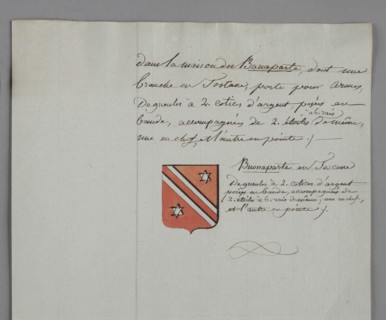 dans la maison du Bonaparte, dont une
branche en Toscane, porte pour Armes,
De gueules à 2. cotices d'argent posées en
à 6. rais
bande, accompagnées de 2. étoiles de même,
une en chef, et l'autre en pointe /.
Buonaparte en Toscane
De gueules à 2. cotices d'argent
posées en bande, accompagnées de
2. étoiles à 6. rais de même; une en chef,
et l'autre en pointe /.